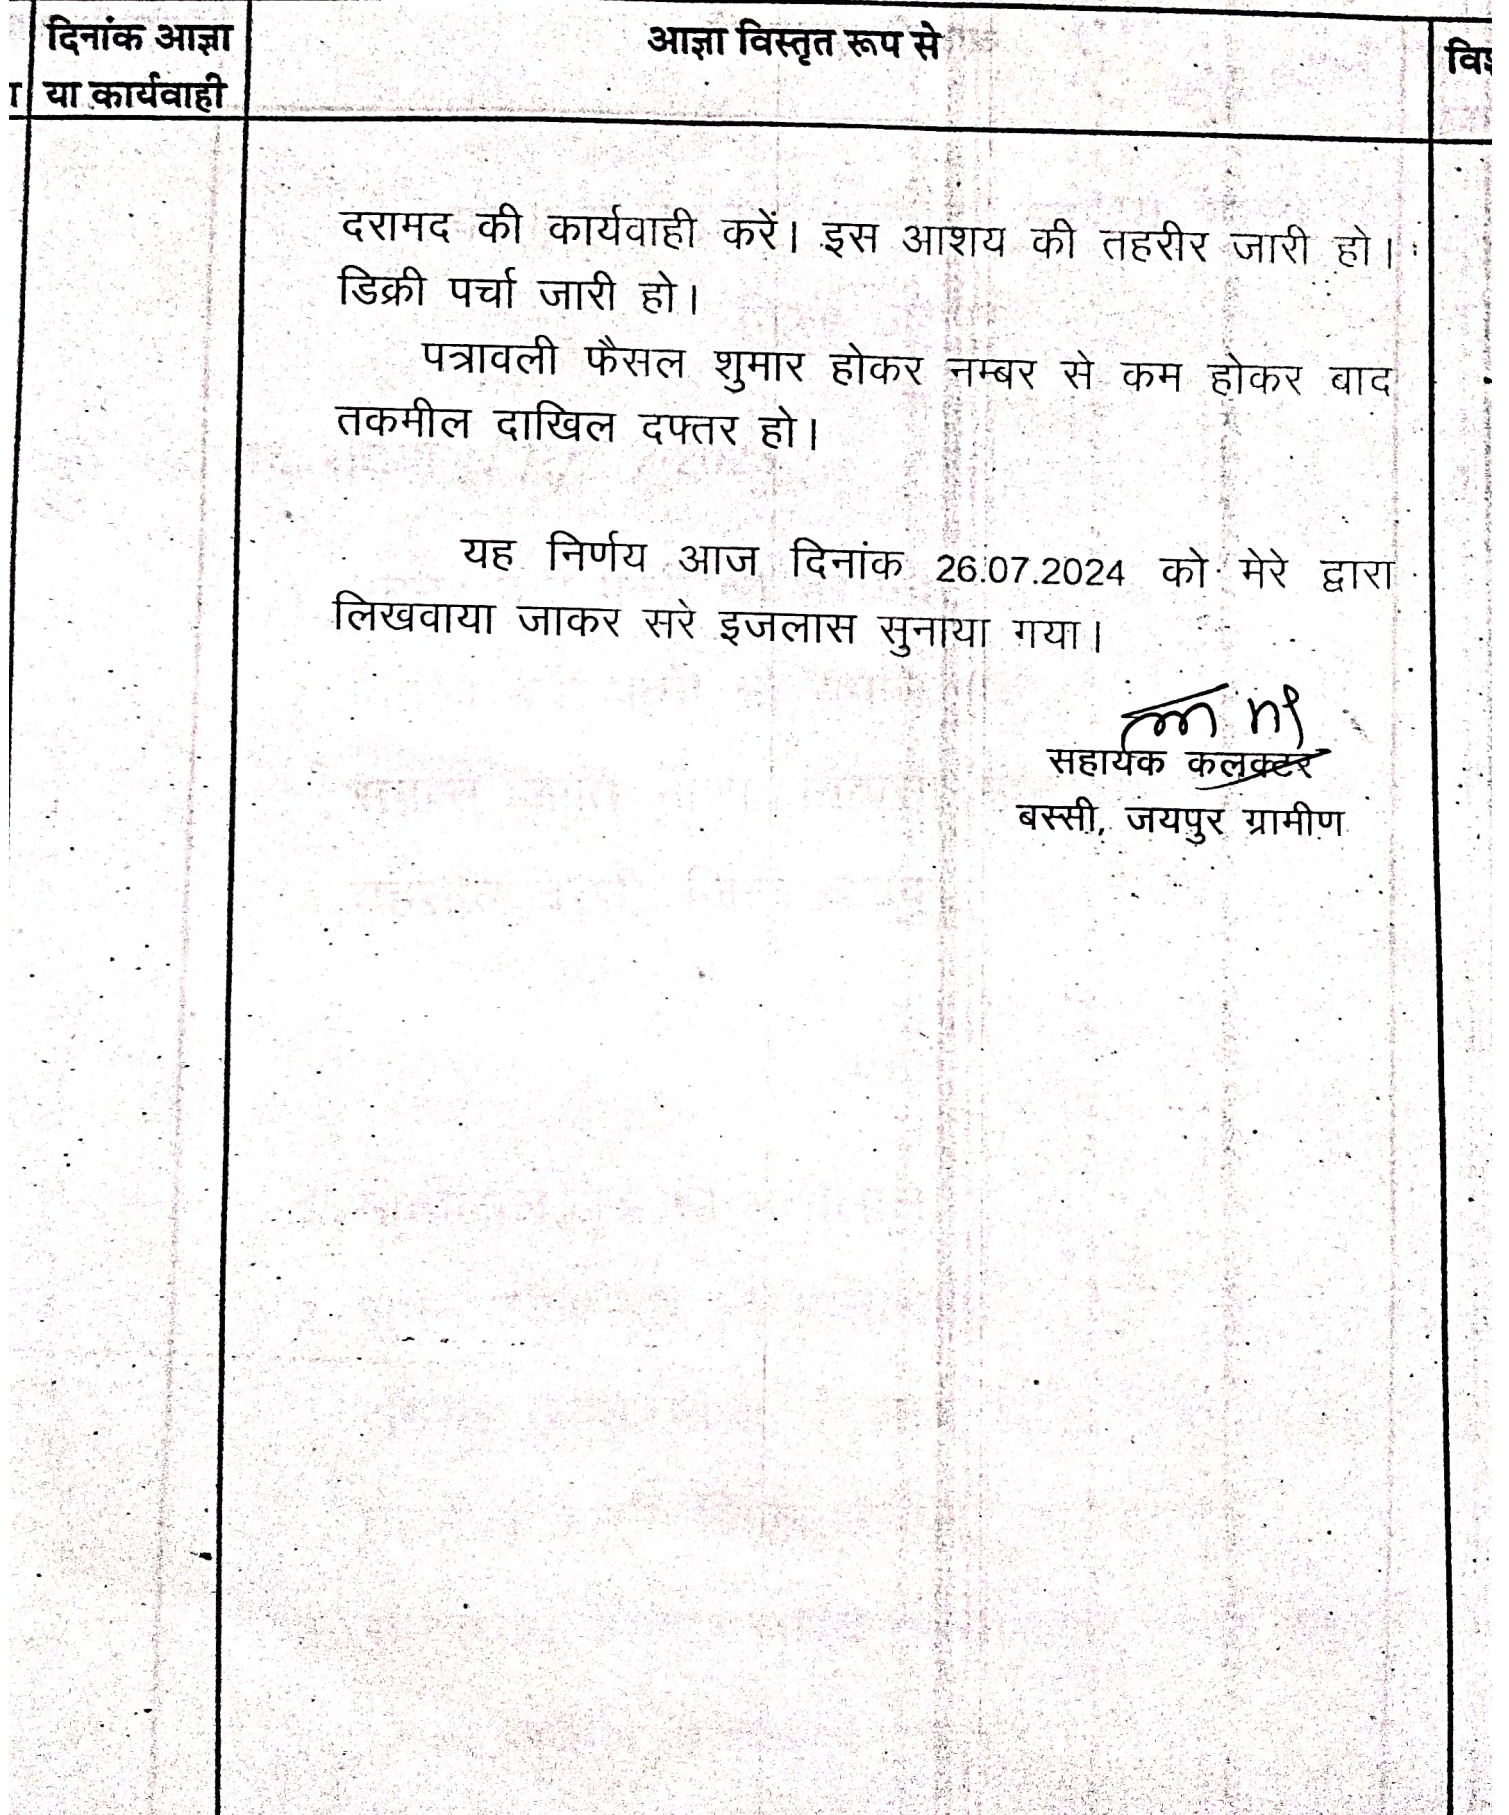 दिनांक आज्ञा
या कार्यवाही
आज्ञा विस्तृत रूप से
दरामद की कार्यवाही करें। इस आशय की तहरीर जारी हो।
डिक्री पर्चा जारी हो।
पत्रावली फैसल शुमार होकर नम्बर से कम होकर बाद
तकमील दाखिल दफ्तर हो।
यह निर्णय आज दिनांक 26.07.2024 को मेरे द्वारा
लिखवाया जाकर सरे इजलास सुनाया गया।
सहायक कलक्टर
बस्सी, जयपुर ग्रामीण